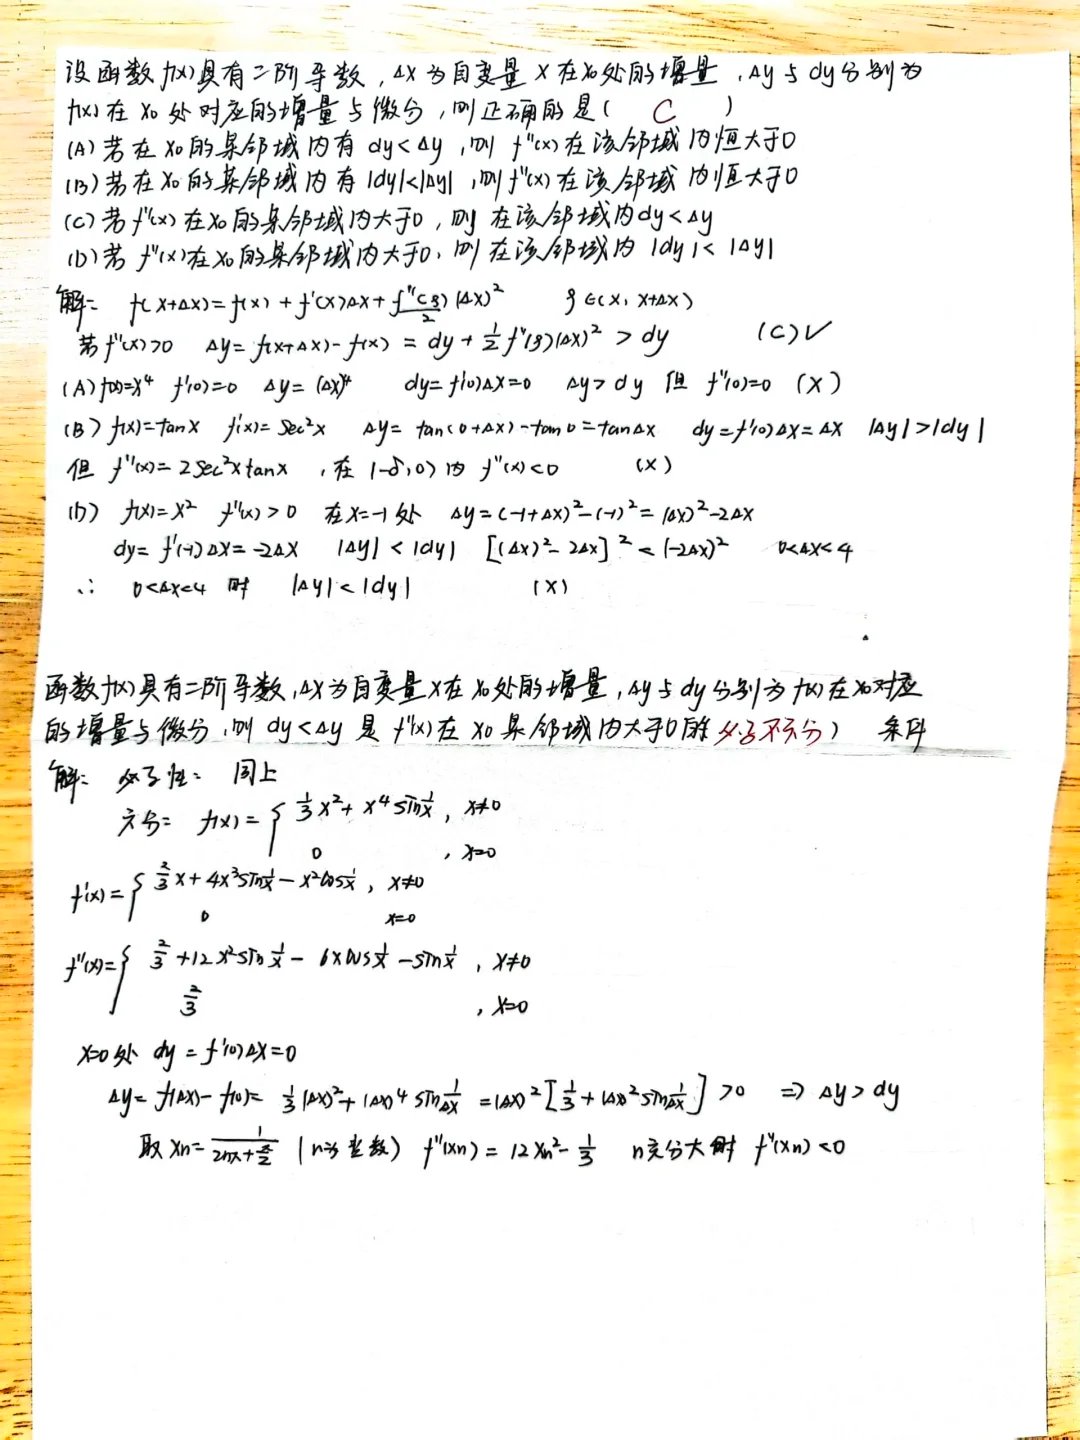 设函数f(x)具有二阶导数,Δx为自变量x在x₀处的增量,Δy与dy分别为
f(x)在x₀处对应的增量与微分,则正确的是( C )
(A)若在x₀的某邻域内有dy<Δy,则f''(x)在该邻域内恒大于0
(B)若在x₀的某邻域内有|dy|<|Δy|,则f''(x)在该邻域内恒大于0
(C)若f''(x)在x₀的某邻域内大于0,则在该邻域内dy<Δy
(D)若f''(x)在x₀的某邻域内大于0,则在该邻域内|dy|<|Δy|
解: f(x+Δx)=f(x)+f'(x)Δx+f''(ξ)/2 (Δx)² ξ∈(x,x+Δx)
若f''(x)>0 Δy=f(x+Δx)-f(x)=dy+½f''(ξ)(Δx)²>dy (C)√
(A)f(x)=x⁴ f'(0)=0 Δy=(Δx)⁴ dy=f'(0)Δx=0 Δy>dy 但 f''(0)=0 (×)
(B)f(x)=tanx f'(x)=sec²x Δy=tan(0+Δx)-tan0=tanΔx dy=f'(0)Δx=Δx |Δy|>|dy|
但 f''(x)=2sec²xtanx ,在(-δ,0)内f''(x)<0 (×)
(D) f(x)=x² f''(x)>0 在x=-1处 Δy=(-1+Δx)²-(-1)²=(Δx)²-2Δx
dy=f'(-1)Δx=-2Δx |Δy|<|dy| [(Δx)²-2Δx]²<(-2Δx)² 0<Δx<4
∴ 0<Δx<4 时 |Δy|<|dy| (×)
函数f(x)具有二阶导数,Δx为自变量x在x₀处的增量,Δy与dy分别为f(x)在x₀对应
的增量与微分,则dy<Δy是f''(x)在x₀某邻域内大于0的(必要不充分) 条件
解: 必要性: 同上
充分: f(x)={ ⅓x²+x⁴sin1/x, x≠0
0 , x=0
f'(x)={ ⅔x+4x³sin1/x-x²cos1/x, x≠0
0 x=0
f''(x)={ ⅔+12x²sin1/x-6xcos1/x-sin1/x, x≠0
⅔ , x=0
x=0处 dy=f'(0)Δx=0
Δy=f(Δx)-f(0)=⅓(Δx)²+(Δx)⁴sin1/Δx=(Δx)²[⅓+(Δx)²sin1/Δx]>0 ⇒Δy>dy
取xn=1/(2nπ+π/2) (n为整数) f''(xn)=12xn²-⅓ n充分大时 f''(xn)<0